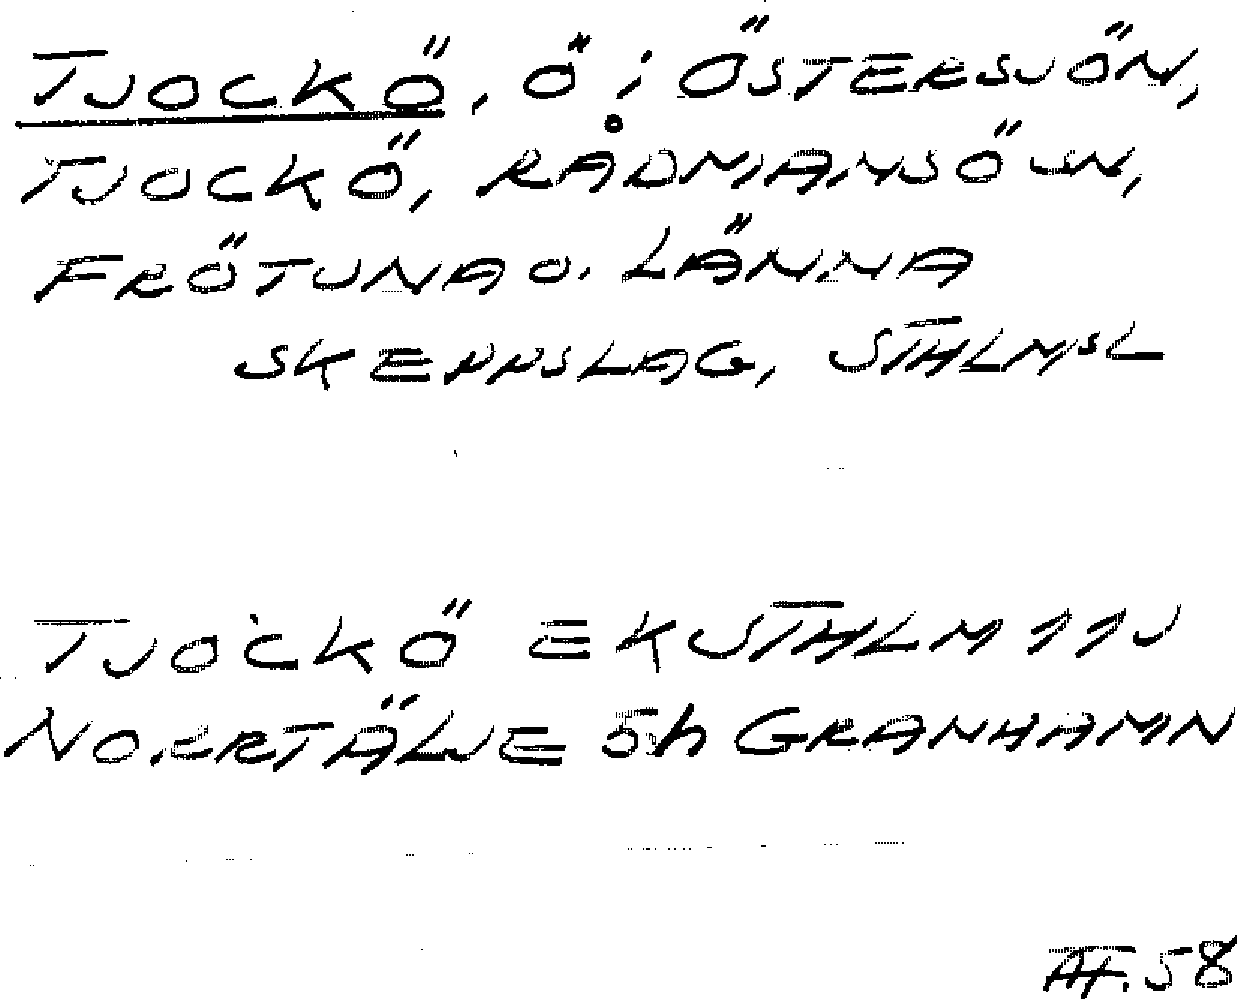 TJOCKÖ, Ö i ÖSTERSJÖN,
TJOCKÖ, RÅDMANSÖ SN,
FRÖTUNA O. LÄNNA
SKEPPSLAG, STHLMSL
TJOCKÖ EK STHLM 11J
NORRTÄLJE 5h GRANHAMN
AF. 58